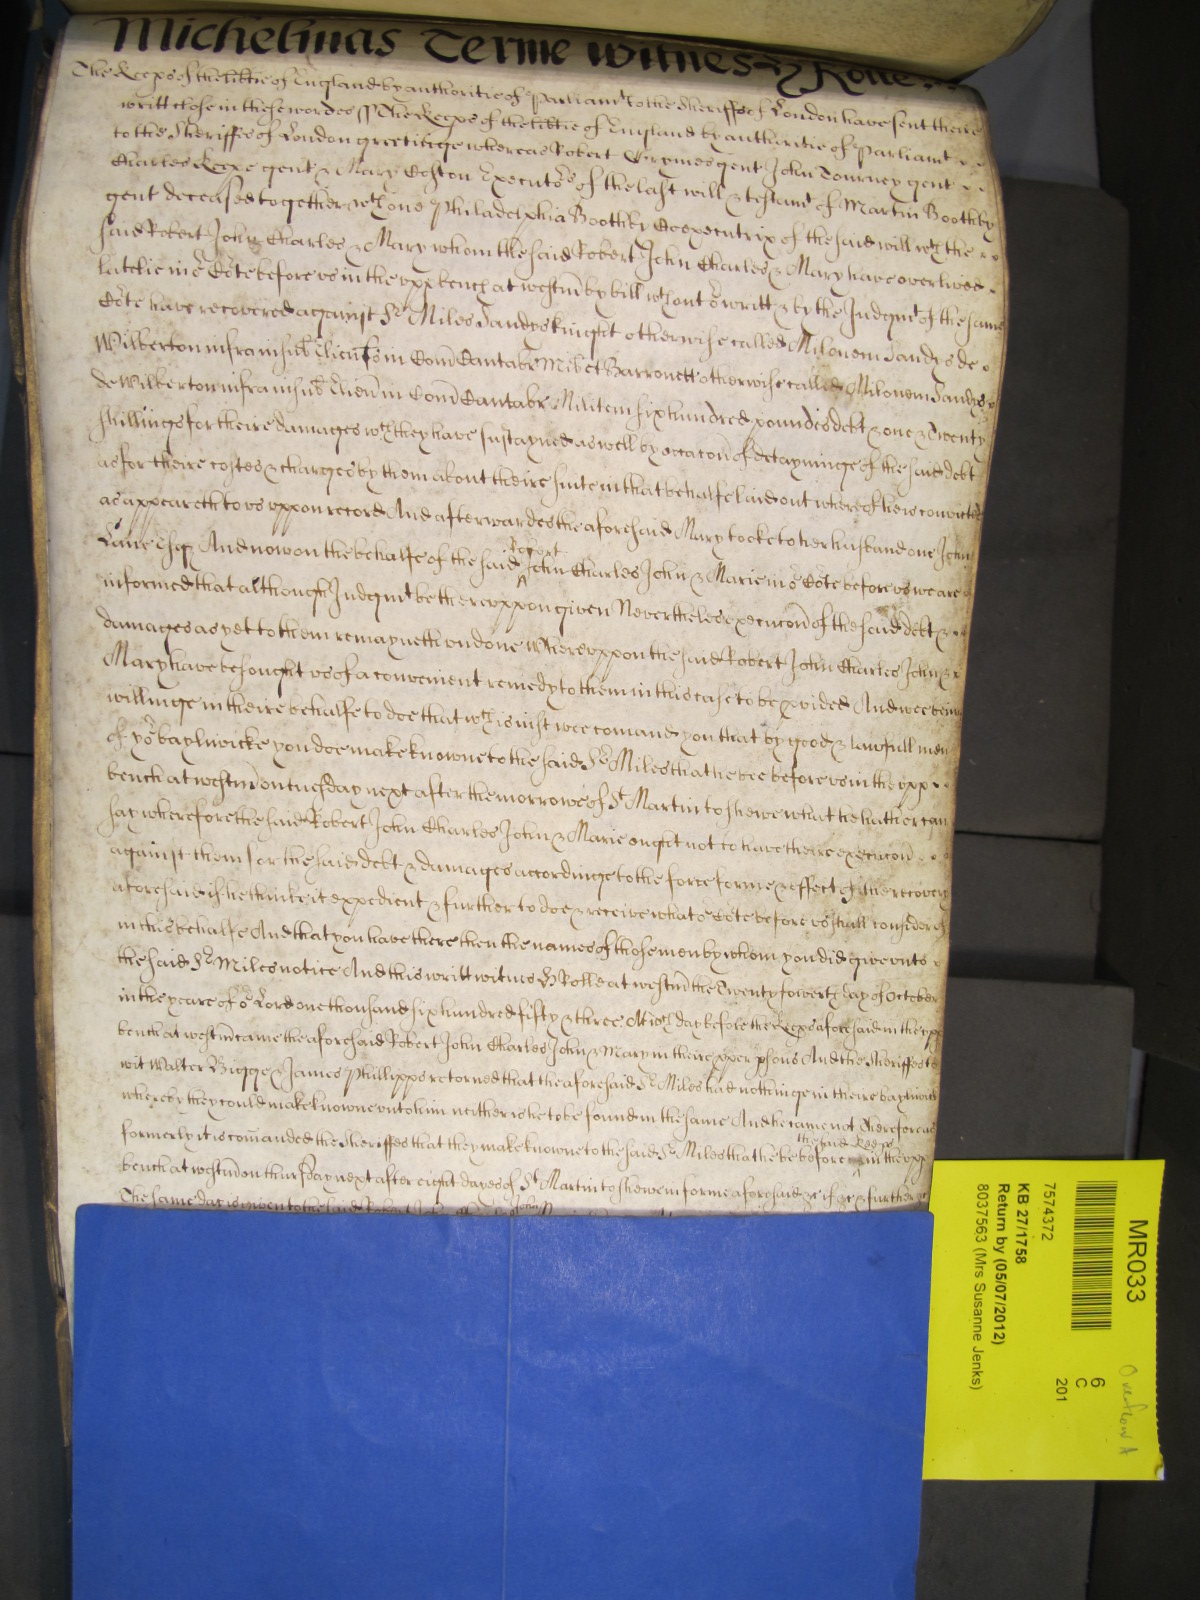 Michelmas Terme Witnes H Rolle
The Keeps of the libtie of England by authoritie of Parliamt to the Sheriffes of London have sent theire
writt close in these wordes ss The Keeps of the libtie of England by authoritie of Parliamt
to the Sheriffes of London greetinge whereas Robert Grymes gent John Tourney gent
Charles Keepe gent & Mary Eston Executors of the last will & testamt of Martin Boothby
gent deceased together wth one Philadelphia Boothby Coexecutrix of the said will wth the
said Robert John Charles & Mary whom the said Robert John Charles & Mary have overlived
latelie in or Cote before us in the upp bench at westm by bill wthout or writt & by the Judgmt of the same
Cote have recovered against Sr Miles Sandys knight otherwise called Milonem Sandys de
Wilberton infra insul Elien in Com Cantabr Milit et Barronett otherwise called Milonem Sandys
de Wilberton infra insul Elien in Com Cantabr Militem six hundred poundes debt & one & Twenty
shillings for theire damages wch they have sustayned aswell by occacon of detayninge of the said debt
as for theire costes & charges by them about theire suite in that behalfe laid out whereof he is convicted
as appeareth to us uppon record And afterwardes the aforesaid Mary tooke to her husband one John
Lane Esqr And now on the behalfe of the said Robert John Charles John & Marie in or Cote before us we are
informed that although Judgmt be thereuppon given Nevertheles execucon of the said debt &
damages as yet to them remayneth undone Whereuppon the said Robert John Charles John &
Mary have besought us of a convenient remedy to them in this case to be pvided And wee being
willinge in theire behalfe to doe that wch is iust wee comand you that by good & lawfull men
of yor bayliwicke you doe make knowne to the said Sr Miles that he bee before us in the upp
bench at westm on tuesday next after the morrowe of St Martin to shewe what he hath er can
say wherefore the said Robert John Charles John & Marie ought not to have theire execucon
against them for the said debt & damages accordinge to the force forme & effect of the recovery
aforesaid if he thinke it expedient & further to doe & receive what or Cote before us shall consider of
in this behalfe And that you have there then the names of those men by whom you did give unto
the said Sr Miles notice And this writt witnes H Rolle at westm the Twenty fowerth day of October
in the yeare of or Lord one thousand six hundred fifty & three At wch day before the Keeps aforesaid in the upp
bench at westm came the aforesaid Robert John Charles John & Mary in theire pper psons And the Sheriffes to
wit Walter Bigge & James Phillipps retorned that the aforesaid Sr Miles had nothinge in theire bayliwicke
whereby they could make knowne unto him neither is he to be found in the same And he came not Therefore as
formerly it is comanded the Sheriffes that they make knowne to the said Sr Miles that he be before the said Keeps in the upp
bench at westm on thursday next after eight dayes of St Martin to shewe in forme aforesaid &c if &c & further &c
The same day is given to the said Robert John
MR033
6
C
201
7574372
KB 27/1758
Return by (05/07/2012)
8037563 (Mrs Susanne Jenks)
Overflow A